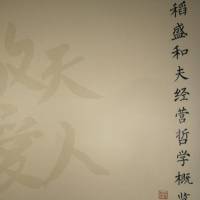 稻盛和夫经营哲学概
天
爱人